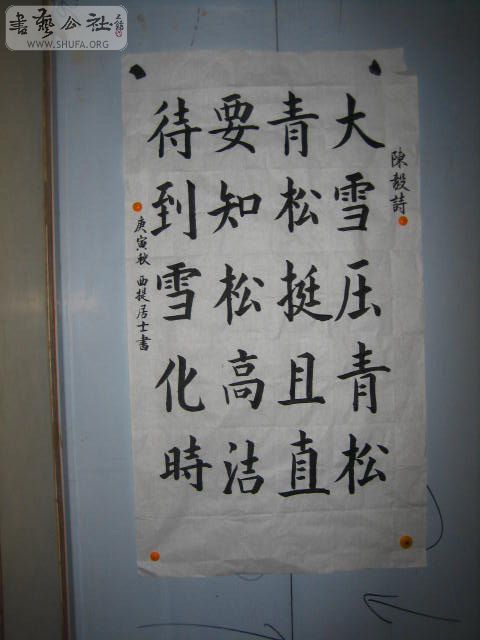 書藝公社
WWW.SHUFA.ORG
陳毅詩
大雪压青松
青松挺且直
要知松高洁
待到雪化時
庚寅秋 西提居士書